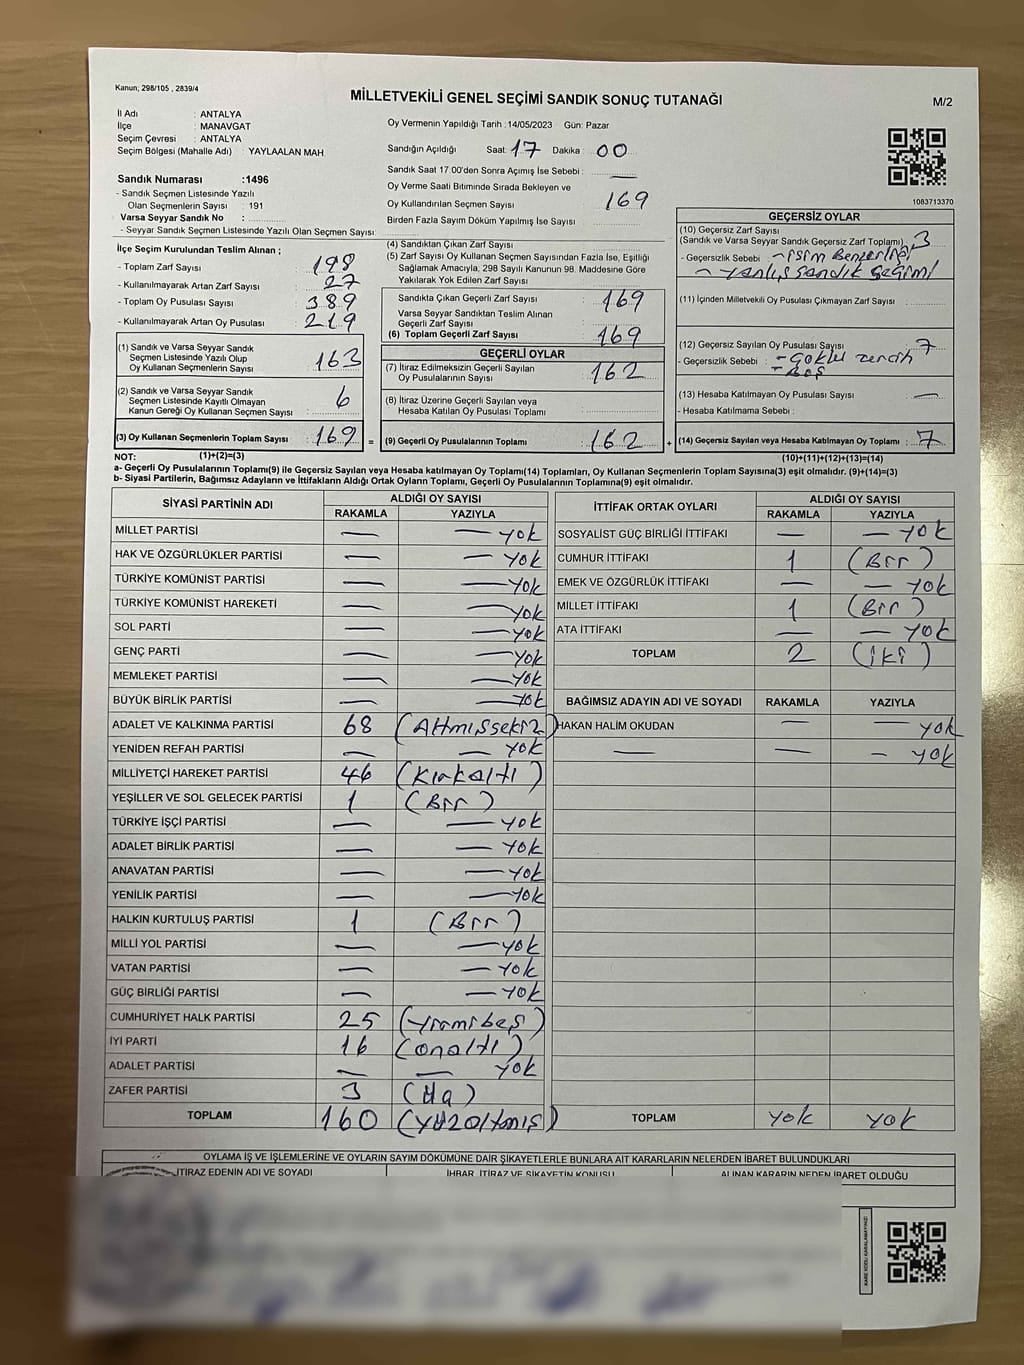 Kanun; 298/105 , 2839/4
MİLLETVEKİLİ GENEL SEÇİMİ SANDIK SONUÇ TUTANAĞI
M/2
İl Adı : ANTALYA
İlçe : MANAVGAT
Seçim Çevresi : ANTALYA
Seçim Bölgesi (Mahalle Adı) : YAYLAALAN MAH.
Sandık Numarası :1496
- Sandık Seçmen Listesinde Yazılı
Olan Seçmenlerin Sayısı : 191
Varsa Seyyar Sandık No :
- Seyyar Sandık Seçmen Listesinde Yazılı Olan Seçmen Sayısı:
Oy Vermenin Yapıldığı Tarih :14/05/2023 Gün: Pazar
Sandığın Açıldığı Saat: 17 Dakika : 00
Sandık Saat 17.00'den Sonra Açımış İse Sebebi : —
Oy Verme Saati Bitiminde Sırada Bekleyen ve
Oy Kullandırılan Seçmen Sayısı : 169
Birden Fazla Sayım Döküm Yapılmış İse Sayısı
1083713370
İlçe Seçim Kurulundan Teslim Alınan ;
- Toplam Zarf Sayısı : 198
- Kullanılmayarak Artan Zarf Sayısı : 27
- Toplam Oy Pusulası Sayısı : 389
- Kullanılmayarak Artan Oy Pusulası : 219
(1) Sandık ve Varsa Seyyar Sandık
Seçmen Listesinde Yazılı Olup
Oy Kullanan Seçmenlerin Sayısı : 163
(2) Sandık ve Varsa Seyyar Sandık
Seçmen Listesinde Kayıtlı Olmayan
Kanun Gereği Oy Kullanan Seçmen Sayısı : 6
(3) Oy Kullanan Seçmenlerin Toplam Sayısı : 169 =
(4) Sandıktan Çıkan Zarf Sayısı
(5) Zarf Sayısı Oy Kullanan Seçmen Sayısından Fazla İse, Eşitliği
Sağlamak Amacıyla, 298 Sayılı Kanunun 98. Maddesine Göre
Yakılarak Yok Edilen Zarf Sayısı
Sandıkta Çıkan Geçerli Zarf Sayısı : 169
Varsa Seyyar Sandıktan Teslim Alınan
Geçerli Zarf Sayısı
(6) Toplam Geçerli Zarf Sayısı : 169
GEÇERLİ OYLAR
(7) İtiraz Edilmeksizin Geçerli Sayılan
Oy Pusulalarının Sayısı : 162
(8) İtiraz Üzerine Geçerli Sayılan veya
Hesaba Katılan Oy Pusulası Toplamı
(9) Geçerli Oy Pusulalarının Toplamı : 162 +
GEÇERSİZ OYLAR
(10) Geçersiz Zarf Sayısı
(Sandık ve Varsa Seyyar Sandık Geçersiz Zarf Toplamı) 3
- Geçersizlik Sebebi : - isim Benzerliği
- Yanlış sandık seçimi
(11) İçinden Milletvekili Oy Pusulası Çıkmayan Zarf Sayısı :
(12) Geçersiz Sayılan Oy Pusulası Sayısı : 7
- Geçersizlik Sebebi : - Çoklu tercih
- Boş
(13) Hesaba Katılmayan Oy Pusulası Sayısı : —
- Hesaba Katılmama Sebebi :
(14) Geçersiz Sayılan veya Hesaba Katılmayan Oy Toplamı : 7
NOT: (1)+(2)=(3) (10)+(11)+(12)+(13)=(14)
a- Geçerli Oy Pusulalarının Toplamı(9) ile Geçersiz Sayılan veya Hesaba katılmayan Oy Toplamı(14) Toplamları, Oy Kullanan Seçmenlerin Toplam Sayısına(3) eşit olmalıdır. (9)+(14)=(3)
b- Siyasi Partilerin, Bağımsız Adayların ve İttifakların Aldığı Ortak Oyların Toplamı, Geçerli Oy Pusulalarının Toplamına(9) eşit olmalıdır.
SİYASİ PARTİNİN ADI ALDIĞI OY SAYISI
RAKAMLA YAZIYLA
MİLLET PARTİSİ — — yok
HAK VE ÖZGÜRLÜKLER PARTİSİ — — yok
TÜRKİYE KOMÜNİST PARTİSİ — — yok
TÜRKİYE KOMÜNİST HAREKETİ — — yok
SOL PARTİ — — yok
GENÇ PARTİ — — yok
MEMLEKET PARTİSİ — — yok
BÜYÜK BİRLİK PARTİSİ — — yok
ADALET VE KALKINMA PARTİSİ 68 (Altmışsekiz)
YENİDEN REFAH PARTİSİ — — yok
MİLLİYETÇİ HAREKET PARTİSİ 46 (Kırkaltı)
YEŞİLLER VE SOL GELECEK PARTİSİ 1 (Bir)
TÜRKİYE İŞÇİ PARTİSİ — — yok
ADALET BİRLİK PARTİSİ — — yok
ANAVATAN PARTİSİ — — yok
YENİLİK PARTİSİ — — yok
HALKIN KURTULUŞ PARTİSİ 1 (Bir)
MİLLİ YOL PARTİSİ — — yok
VATAN PARTİSİ — — yok
GÜÇ BİRLİĞİ PARTİSİ — — yok
CUMHURİYET HALK PARTİSİ 25 (yirmibeş)
İYİ PARTİ 16 (onaltı)
ADALET PARTİSİ — — yok
ZAFER PARTİSİ 3 (üç)
TOPLAM 160 (yüzaltmış)
İTTİFAK ORTAK OYLARI ALDIĞI OY SAYISI
RAKAMLA YAZIYLA
SOSYALİST GÜÇ BİRLİĞİ İTTİFAKI — — yok
CUMHUR İTTİFAKI 1 (Bir)
EMEK VE ÖZGÜRLÜK İTTİFAKI — — yok
MİLLET İTTİFAKI 1 (Bir)
ATA İTTİFAKI — — yok
TOPLAM 2 (iki)
BAĞIMSIZ ADAYIN ADI VE SOYADI RAKAMLA YAZIYLA
HAKAN HALİM OKUDAN — — yok
— — — yok
TOPLAM yok yok
OYLAMA İŞ VE İŞLEMLERİNE VE OYLARIN SAYIM DÖKÜMÜNE DAİR ŞİKAYETLERLE BUNLARA AİT KARARLARIN NELERDEN İBARET BULUNDUKLARI
İTİRAZ EDENİN ADI VE SOYADI İHBAR, İTİRAZ VE ŞİKAYETİN KONUSU ALINAN KARARIN NEDEN İBARET OLDUĞU
KARE KODU KARALAMAYINIZ!